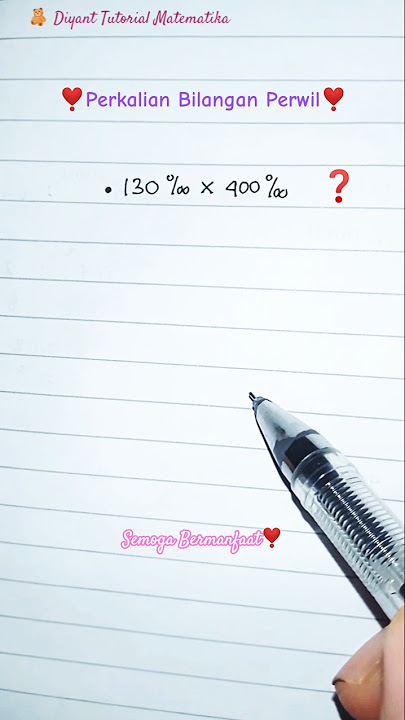 🧸 Diyant Tutorial Matematika
❣️Perkalian Bilangan Perwil❣️
• 130 ‰ × 400 ‰ ❓
Semoga Bermanfaat❣️